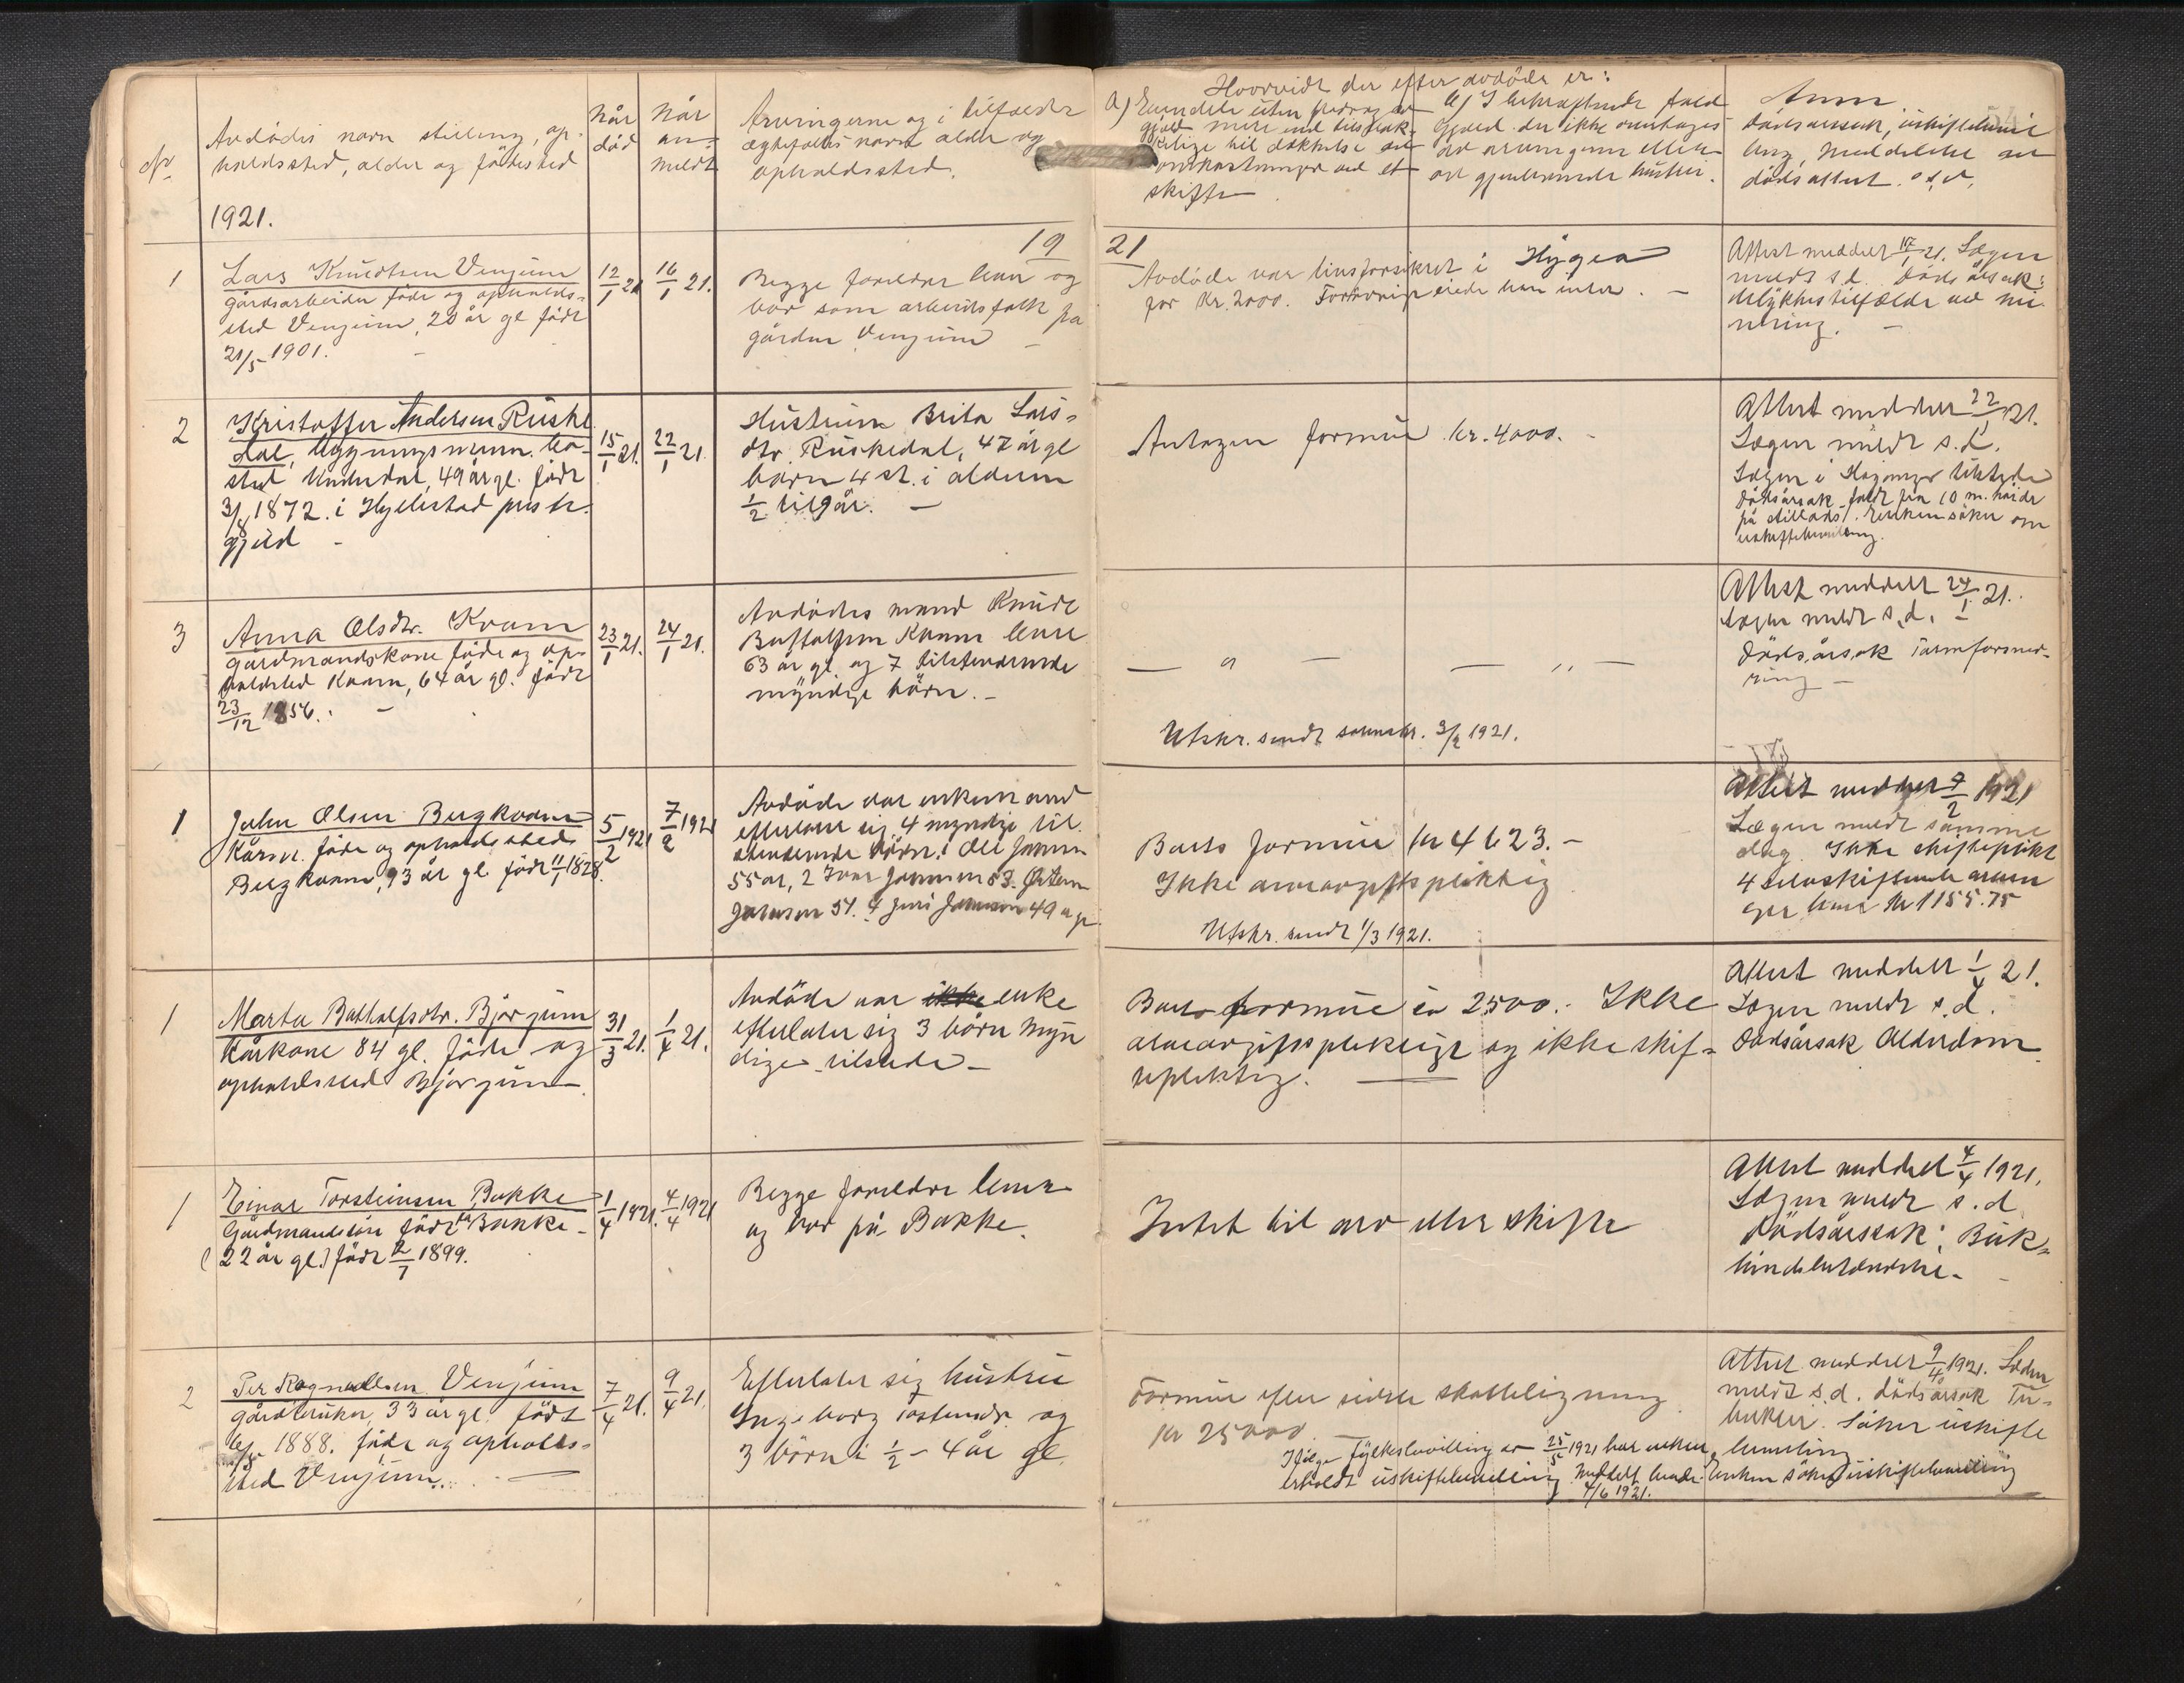 No
Avdödes navn stilling, op-
holdssted, alder og födested
1921.
Når
död
Når
an-
meldt
Arvingerne og i tilfælde
egtefælles navn alder og
opholdssted.
Hvorvidt der efter avdöde er:
a) Eiendele uten fradrag av
gjæld mere end tilstræk-
kelige til dækkelse av
omkostninger ved et
skifte
b) I bekræftende fald
Gjæld der ikke overtages
av arvingerne eller
av gjenlevende hustru.
Anm.
Dödsaarsak, uskiftebevil-
ling, Meddelelse av
dödsattest o.s.v.
19
21
1
Lars Knudtsen Venjum
gårdsarbeider föde og opholds-
sted Venjum, 20 år gl. födt
21/5 1901. -
12/1 21
16/1 21.
Begge forældre lever og
bor som arbeidsfolk på
gården Venjum -
Avdöde var livsforsikret i Hygea
for Kr. 2000. Forövrig eiede han intet. -
Attest meddelt 17/1 21. Lægen
meldt s.d. Döds årsak:
ulykkestilfælde ved mi-
nering. -
2
Kristoffer Andersen Ruske
dal, bygningsmann. bo-
sted Underdal, 49 år gl. födt
3/8 1872. i Hyllestad preste-
gjeld -
15/1 21.
22/1 21.
Hustruen Brita Lars-
dtr. Ruskedal, 47 år gl
börn 4 st. i alderen
1/2 til 9 år. -
Antagen formue kr. 4000. -
Attest meddelt 22/1 21.
Lægen meldt s.d.
Lægen i
Dödsårsak faldt fra 10 m. höide
på stillads. Enken söker om
uskiftebevilling.
3
Anna Olsdtr. Kvam
gårdmandskone föde og op-
holdsted Kvam, 64 år gl. födt
23/12 1856. -
23/1 21.
24/1 21.
Avdödes mand Knut
Kvam lever
63 år gl. og 7 tilstedeværende
myndige börn. -
— " —
— " —
Utskr. sendt sorenskr. 3/2 1921.
Attest meddelt 24/1 21.
Lægen meldt s.d. -
Dödsårsak Tarmforsnev-
ring -
1
John Olsen Bergkvam
Kårm. föde og opholdssteds
Bergkvam, 93 år gl. födt 11/1 1828.
5/2 1921
7/2 1921
Avdöde var enkemand
efterlater sig 4 myndige til-
stedeværende börn: Ole Johnsen
55 år, 2 Ivar Johnsen 53.
Johnsen 51. 4 Johnsen 49 år gl
Boets formue kr 4623. -
Ikke arveavgiftspliktig
Utskr. sendt 1/3 1921.
Attest meddelt 7/2 1921
Lægen meldt samme
dag. Ikke skiftepliktig
4 selvskiftende arvin
ger hver kr 1155.75
1
Marta Botholfsdtr. Bjørgum
Kårkone 84 gl. föde og
opholdssted Bjørgum
31/3 21.
1/4 21.
Avdöde var ikke enke
efterlater sig 3 börn myn
dige - tilstede -
Boets formue ca 2500.- Ikke
arveavgiftspliktige og ikke skif-
tepliktig. —
Attest meddelt 1/4 21.
Lægen meldt s.d.
Dödsårsak Alderdom
1
Einar Torsteinsen Bakke
Gårdmandssön födt Bakke -
(22 år gl.) födt 2/7 1899.
1/4 1921.
4/4 1921
Begge forældre lever
og bor på Bakke.
Intet til arv eller skifte
Attest meddelt 4/4 1921.
Lægen meldt s.d
Dödsårsak: Buk-
hindebetændelse. -
2
Per Ragnvaldsen Venjum
gårdbruker, 33 år gl. födt
1888. föde og opholds-
sted Venjum. —
7/4 21.
9/4 21.
Efterlater sig hustru
Ingeborg og
3 börn i 1/2 - 4 år gl.
Formue efter sidste skatteligning
kr 25000 -
Ifölge fylkesbevilling av 25/5 1921 har enken
erholdt uskiftebevilling. Meddelt hende
4/6 1921.
Attest meddelt 9/4 1921. Lægen
meldt s.d. Dödsårsak Tu-
berkler. Söker uskifte
bevilling
Enken söker uskiftebevilling